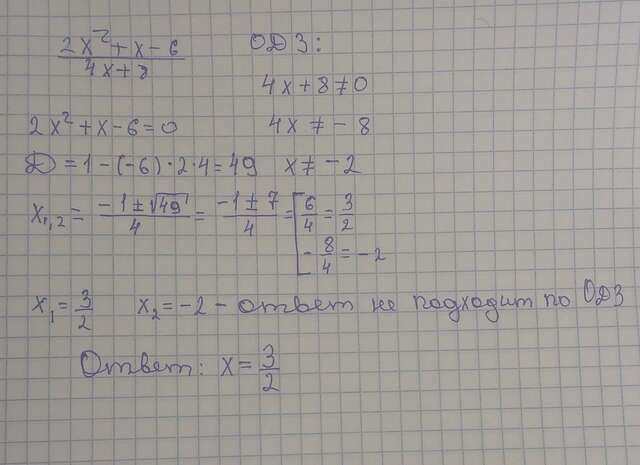 2x²+x-6 / 4x+8
ОДЗ:
4x+8≠0
2x²+x-6=0
4x≠-8
D=1-(-6)·2·4=49
x≠-2
x₁,₂=(-1±√49)/4=(-1±7)/4=[6/4=3/2
-8/4=-2
x₁=3/2 x₂=-2-ответ не подходит по ОДЗ
Ответ: x=3/2